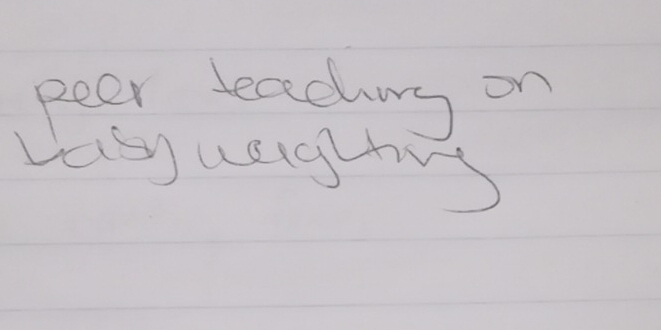 peer teaching on
weighting